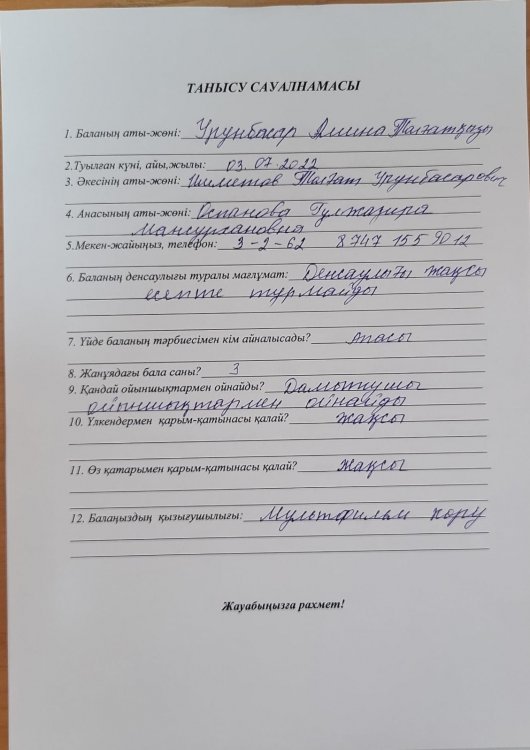 ТАНЫСУ САУАЛНАМАСЫ
1. Баланың аты-жөні: Урунбасар Амина Талғатқызы
2.Туылған күні, айы,жылы: 03.07.2022
3. Әкесінің аты-жөні: Ишметов Талғат Урунбасарович
4. Анасының аты-жөні: Оспанова Гулжаҳира
Мансурхановна
5.Мекен-жайыңыз, телефон: 3-2-62 8 747 155 90 12
6. Баланың денсаулығы туралы мағлұмат: Денсаулығы жақсы
есепте тұрмайды
7. Үйде баланың тәрбиесімен кім айналысады? Апасы
8. Жанұядағы бала саны? 3
9. Қандай ойыншықтармен ойнайды? Дамытушы
ойыншықтармен ойнайды
10. Үлкендермен қарым-қатынасы қалай? жақсы
11. Өз қатарымен қарым-қатынасы қалай? жақсы
12. Балаңыздың қызығушылығы: Мультфильм көру
Жауабыңызға рахмет!